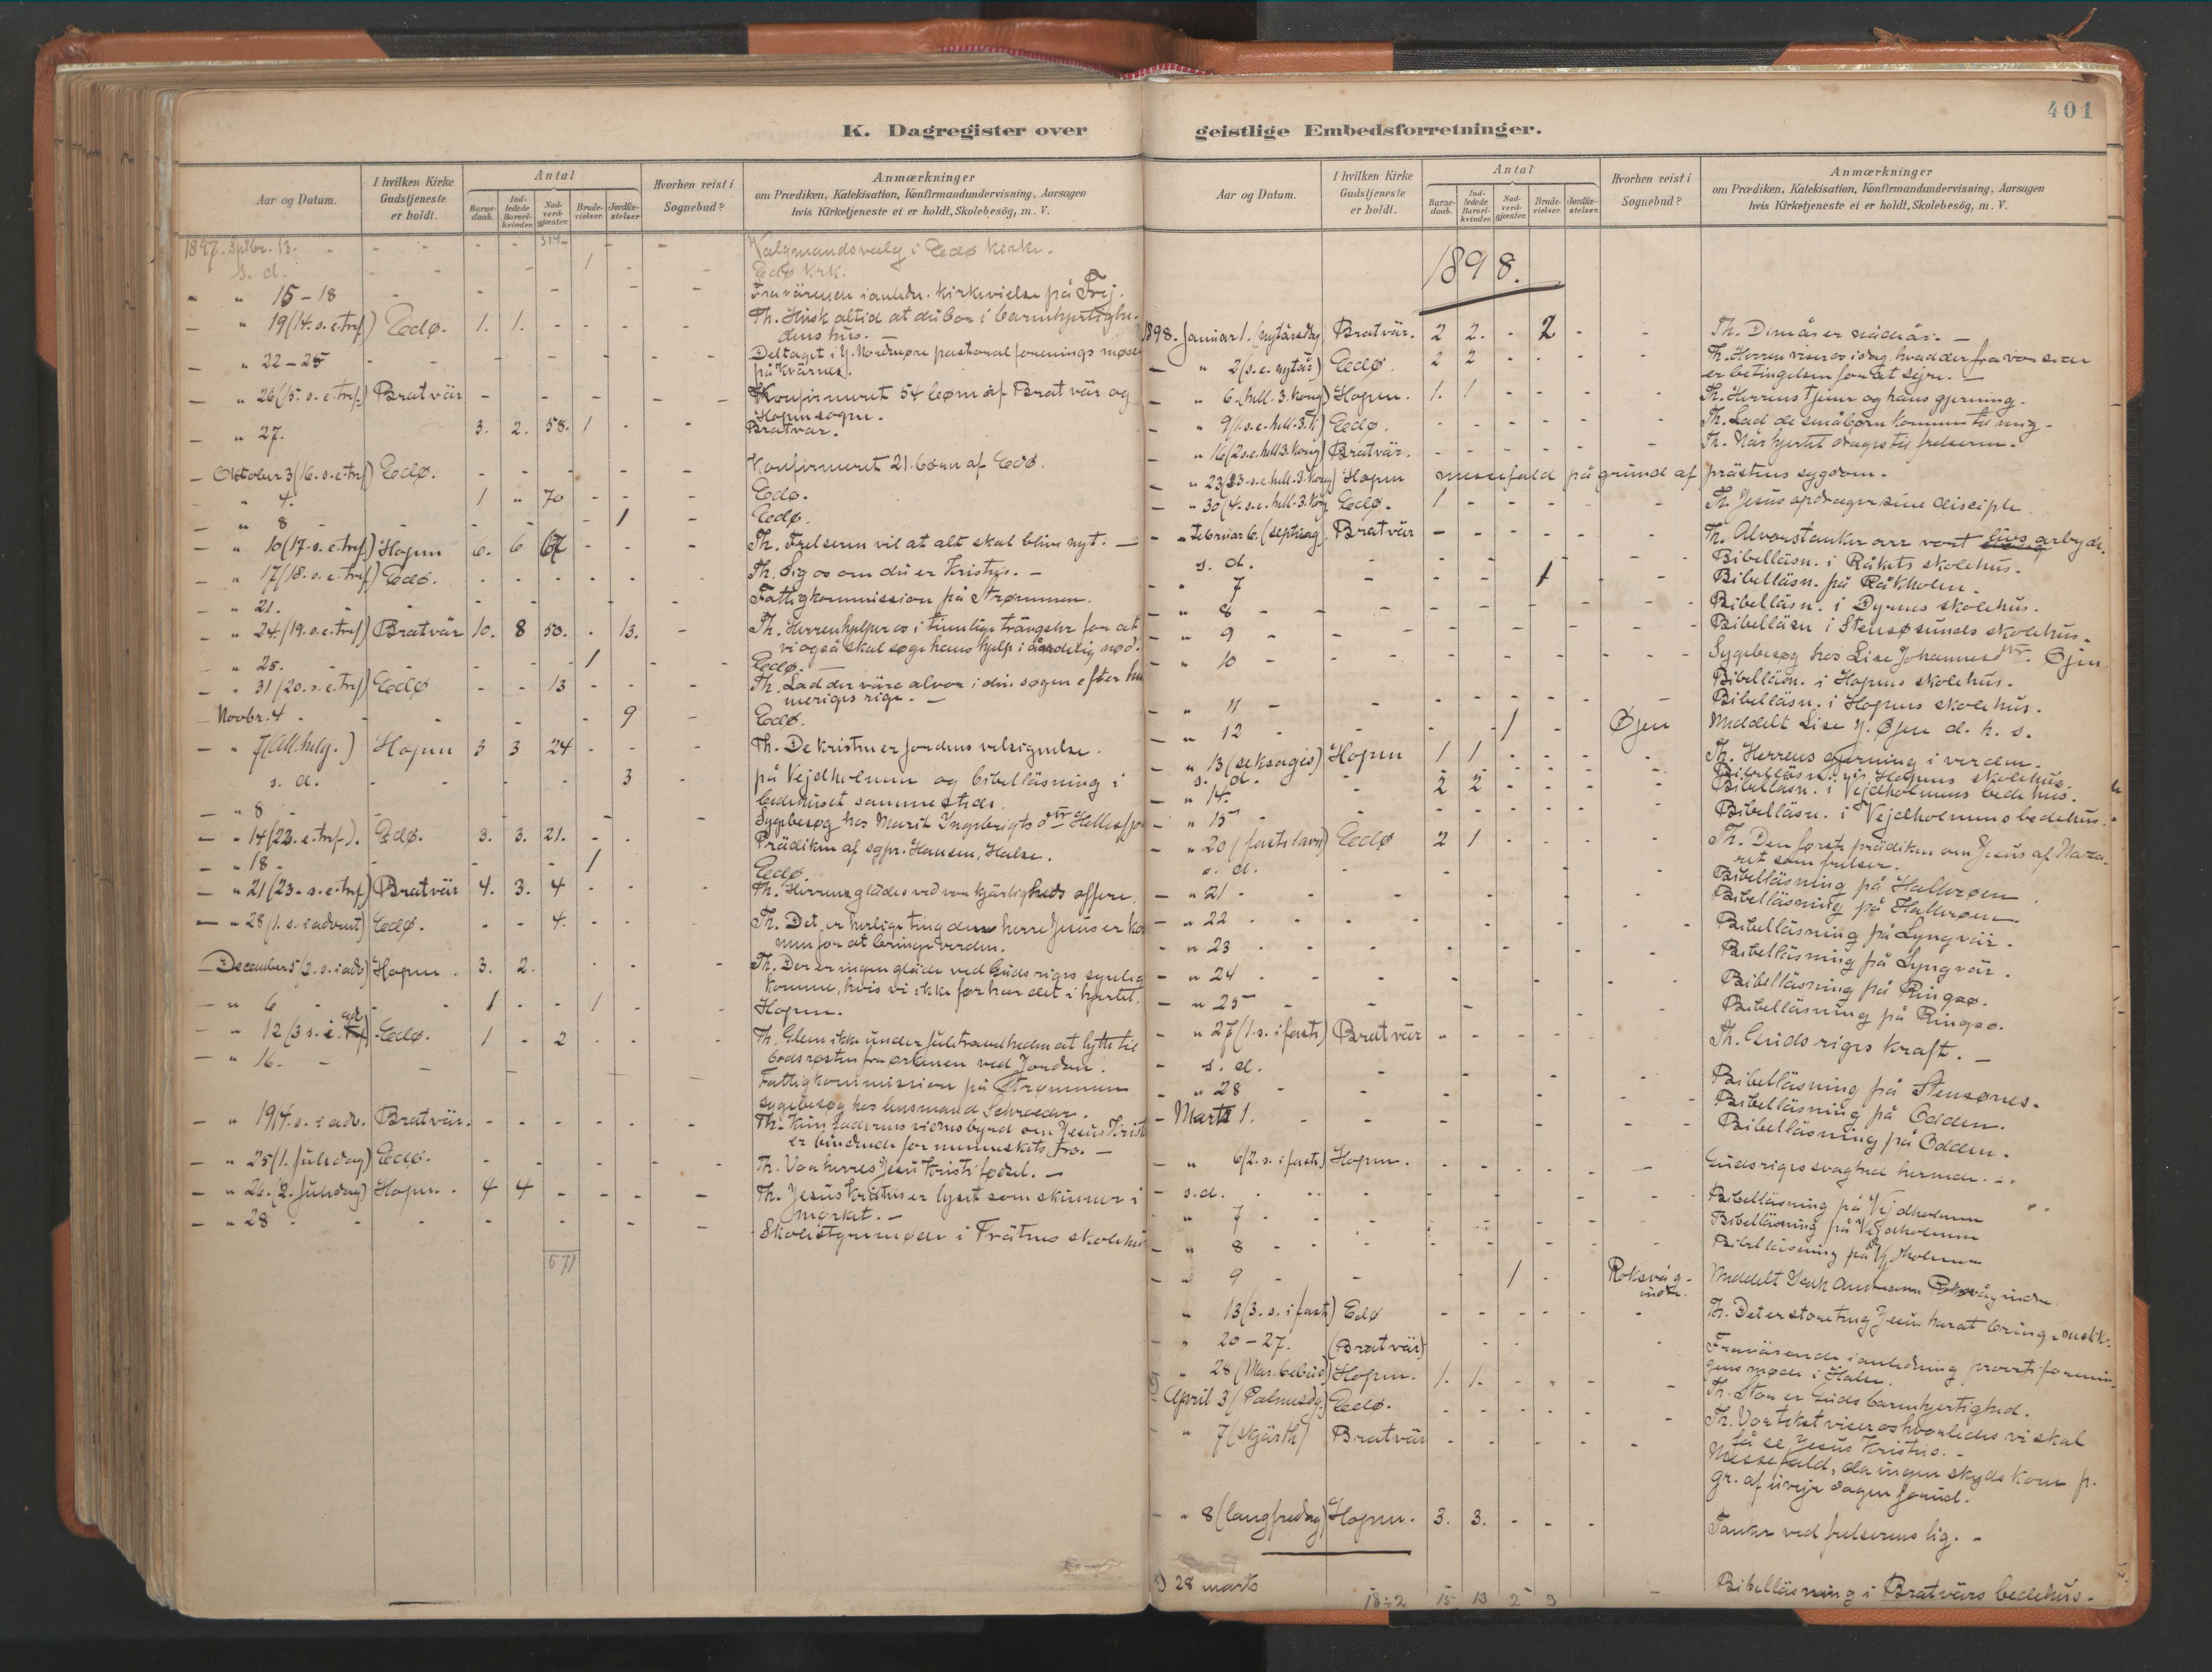 401
K. Dagregister over
Aar og Datum. I hvilken Kirke Gudstjeneste er holdt. Antal Hvorhen reist i Sognebud? Anmærkninger
Barnedaab. Indledede Barselkvinder. Nadverdgjester. Brudevielser. Jordfæstelser
om Prædiken, Katekisation, Konfirmandundervisning, Aarsagen
hvis Kirketjeneste ei er holdt, Skolebesög, m. V.
1897. Septbr. 13. - - - Valgmandsvalg i Edø kirke.
s. d. - - - 1 - - Edø kirk.
- " 15-18 - - - Fraværende i anledn. kirkevielse på Frej.
- " 19 (14. s. e. tref) Edø. 1. 1. - - - - Th. Husk altid at du bor i barmhjertighe-
dens hus. -
" 22-25 - - - Deltaget i Y. Nordmøre pastoral forenings møde
på Kvärnes.
- " 26 (15. s. e. tref.) Bratvär - - - - - - Konfirmeret 54 börn af Bratvär og
Hopen sogne.
- " 27. 3. 2. 58. 1 - - Bratvär.
- Oktober 3 (16. s. e. tref) Edø. - - - - - - Konfirmeret 21 börn af Edø.
- " 4. 1 " 70 - - - Edø.
- " 8 - - - - 1 - Edø.
- " 10 (17. s. e. tref) Hopen 6. 6 67 - - - Th. Frelseren vil at alt skal blive nyt. -
- " 17 (18. s. e. tref) Edø. - - - - - Th. Sig os om du er Kristus. -
- " 21. - - - Fattigkommission på Strømmen.
- " 24. (19. s. e. tref) Bratvär 10. 8 50. . 13. - Th. Herren hjelper os i timelige trängsler for at
vi også skal søge hans hjelp i åndelig nød.
- " 25. - - - 1 - - Edø.
- " 31 (20. s. e. tref) Edø - - 13 - - - Th. Lad der väre alvor i din søgen efter him
meriges rige. -
- Novbr. 4 - - - - 9 - Edø.
- " 7 (All. helg.) Hopen 3 3 24 - - - Th. De kristne er jordens velsignelse.
s. d. - - - 3 - på Vejdholmen og bibelläsning i
bedehuset sammesteds.
- " 8 - Sygebesøg hos Marit Ingebrigtsdtr
- " 14 (22. e. tref). Edø. 3. 3. 21. - - Prädiken af sgpr. Hansen, Halse.
- " 18 - - - 1 Edø.
- " 21 (23. s. e. tref) Bratvär 4. 3. 4 - - - Th. Herrens gläde ved vor kjärligheds offere.
- " 28 (1. s. i advent) Edø. - - 4. - - Th. Det er herlige ting den herre Jesus er kom
men for at bringe verden.
- December 5 (2. s. i adv) Hopen. 3. 2. - - - Th. Der er ingen gläde ved Guds riges synlig
komme, hvis vi ikke før har det i hjertet.
- " 6 - - 1 - - 1 - - Hopen.
- " 12 (3 s. i adv) Edø. 1 - 2 - - - Th. Glem ikke under juletravelheden at lytte til
bodsrøsten fra ørkenen ved Jordan.
- " 16. - - - Fattigkommission på Strømmen
Sygebesøg hos husmand Schrøder.
- " 19 (4. s. i adv. Bratvär. - - - - - - Th. vidnesbyrd om Jesus Krist
er bindende for menneskets tro. -
- " 25 (1. juledag) Edø. - - - - - Th. Vor herres Jesu Kristi fødsel. -
- " 26. (2. juledag) Hopen. 4 4 - - - - Th. Jesus Kristus er lyset som skinner i
mørket. -
- " 28 - - - - - - Skolestyremøde i Frätnes skolehus
571
geistlige Embedsforretninger.
Aar og Datum. I hvilken Kirke Gudstjeneste er holdt. Antal Hvorhen reist i Sognebud? Anmærkninger
Barnedaab. Indledede Barselkvinder. Nadverdgjester. Brudevielser. Jordfæstelser
om Prædiken, Katekisation, Konfirmandundervisning, Aarsagen
hvis Kirketjeneste ei er holdt, Skolebesög, m. V.
1898.
1898. Januar 1. (nytårsdag) Bratvär. 2 2. - 2 - - Th. Dimåser nådeår. -
- " 2 (s. e. nytår) Edø. 2 2 - - - - Th. Herren viser os idag, hvad der fra vor side
er betingelsen for at sejre. -
- " 6. (hell. 3. kong) Hopen. 1. 1 - - - - Th. Herrens tjener og hans gjerning.
" 9 (1. s. e. hell. 3. k) Edø. - - - - - - Th. Lad de småbørn komme til mig -
- " 16 (2 s. e. hell 3. kong) Bratvär. - - - - - - Th. Når hjertet drages til frelseren.
- " 23 (3. s. e. hell. 3. kong) Hopen messefald på grund af prästens sygdom.
- " 30 (4. s. e. hell. 3. kong Edø. 1 - - - - - Th. Jesus opdrager sine disciple.
- " Februar 6. (septuag). Bratvär - - - - - - Th. Alvorstanker over vort livs arbejde.
s. d. - - - Bibelläsn. i Råkets skolehus.
" 7 - - - 1 - - Bibelläsn. på Råkholm.
- " 8 - - - Bibelläsn. i Dyrnes skolehus.
- " 9 - - - Bibelläsn i Stensøsunds skolehus.
- " 10 - - - Sygebesøg hos Lise Johannesdtr. Øjen
Bibelläsn. i Hopens skolehus.
- " 11 - - - Bibelläsn. i Hopens skolehus.
- " 12 - - 1 - Øjen Meddelt Lise J. Øjen d. h. s.
- " 13 (seksages) Hopen 1 1 - - - - Th. Herrens gjerning i verden.
s. d. - - - Bibelläsn. i Hopens skolehus.
- " 14. 2 2 - - - Bibelläsn. i Vejdholmens bedehus.
- " 15 - - - Bibelläsn. i Vejdholmens bedehus.
- " 20 (fastelavn) Edø 2 1 - - - - Th. Den første prädiken om Jesus af Naza-
ret som frelser.
s. d. - - - Bibelläsning på Hallerøen.
- " 21 - - - Bibelläsning på Hallerøen.
- " 22 - - - Bibelläsning på Lyngvär.
- " 23 - - - Bibelläsning på Lyngvär.
- " 24 - - - Bibelläsning på Ringsø.
- " 25 - - - Bibelläsning på Ringsø.
- " 27 (1. s. i faste) Bratvär - - - - - - Th. Guds riges kraft. -
- s. d. - - - Bibelläsning på Stensønes.
" 28 - - - Bibelläsning på Odden.
- Marts 1. - - - Bibelläsning på Odden.
- " 6 (2. s. i faste) Hopen. - - - - - - Guds riges svaghed hernede.
- s. d. - - - Bibelläsning på Vejdholmen
" 7 - - - Bibelläsning på Vejdholmen
- " 8 - - - Bibelläsning på Vejdholmen
- " 9 - - 1 - Roksvåg - indre. Meddelt Roksvåg indre.
" 13 (3. s. i faste) Edø - - - - - - Th. Det er store ting Jesus har at bringe
- " 20-27. (Bratvär) - - - Fraværende i anledning provstiforenin-
gens møde i Halse.
" 28 (Mar. bebud) Hopen. 1. 1. - - - - Th. Stor er Guds barmhjertighed.
April 3 (Palmesdg.) Edø. - - - - - - Th. Vor tekst viser os hvorledes vi skal
få se Jesus Kristus. -
" 7 (skjärth) Bratvär - - - - - - Messefald, da ingen skyds kom p.
gr. af uvejr dagen forud.
- " 8 (langfredag) Hopen. 3. 3. - - - Tanker ved frelserens lig. -
28 marts - Bibelläsning i Bratvärs bedehus. -
18÷2 15 13 2 3